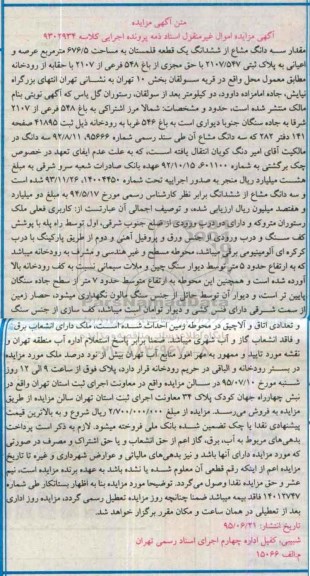 متن آگهی مزایده
آگهی مزایده اموال غیرمنقول اسناد ذمه پرونده اجرایی کلاسه ۹۳۰۴۹۳۴
مقدار سه دانگ مشاع از ششدانگ یک قطعه قلمستان به مساحت ۶۷۶/۵ مترمربع عرصه و
اعیانی به پلاک ثبتی ۲۱۰۷/۵۴۷ با حق مجزی از باغ ۵۴۸ فرعی از ۲۱۰۷ با حقابه از رودخانه
معمول محل واقع در قریه سولقان بخش ۱۰ تهران به نشانی تهران انتهای بزرگراه
نیایش، جاده امامزاده داوود، دو کیلومتر بعد از سولقان، رستوران گل یاس که آگهی نوبتی بنام
مالک منتشر شده است، حدود و مشخصات: شمالا مرز اشتراکی به باغ ۵۴۸ فرعی از ۲۱۰۷
شرقا به جاده سنگان جنوبا دیواری است به باغ ۵۴۶ غربا به رودخانه ذیل ثبت ۴۱۸۹۵ صفحه
۱۴۱ دفتر ۲۸۲ که سه دانگ مشاع آن طی سند رسمی شماره ۹۵۶۶۶، ۹۲/۸/۱۱ سه دانگ در
مالکیت آقای امیر دنگ کوبان انتقال یافته اسـت، که به علت عدم ایفای تعهد در خصوص
چک برگشتی به شماره ۶۰۱۱۰۰، ۹۲/۱۰/۱۵ عهده بانک صادرات شعبه سرو شرقی به مبلغ
هشت میلیارد ریال منجر به صدور اجراییه تحت شماره ۱۴۰۰۲۴۵۰، ۹۳/۱۱/۲۶ شده است
و سه دانگ مشاع از ششدانگ برابر نظر کارشناس رسمی مورخ ۹۴/۵/۱۷ به مبلغ دو میلیارد
و هفتصد میلیون ریال ارزیابی شده، و توصیف اجمالی آن عبارتست از: کاربری فعلی ملک
رستوران متروکه و دارای دو درب ورودی از ضلع جنوب شرقی، اول توسط راه پله با پوشش
کف سنگ و درب ورودی از جنس ورق و پروفیل آهنی و دوم از طریق پارکینگ با درب
کرکره ای آلومینیومی برقی میباشد. محوطه مسطح و غیر هندسی و مشرف به رودخانه میباشد
که به ارتفاع حدود ۵ متر توسط دیوار سنگ چین و ملات سیمانی نسبت به کف رودخانه بالا
آورده شده است و همچنین این محوطه به ارتفاع متوسط حدود ۷ متر از سطح جاده سنگان
پایین تر است، و دیوار آن توسط حائل از جنس سنگ مالون نگهداری میشود، حصار زمین
از سمت شرقی دارای فنس کشی و دیوار نومان است میباشد، کف سازی از جنس سنگ
و تعدادی اتاق و آلاچیق در محوطه زمین احداث شده است، ملک دارای انشعاب برق
و فاقد انشعاب گاز و آب شهری میباشد. ضمنا برابر پاسخ استعلام اداره آب منطقه تهران و
نقشه مورد تایید و ممهور به مهر امور منابع آب تهران بیش از نود درصد ملک مورد مزایده
در بستر رودخانه و الباقی در حریم رودخانه قرار دارد، پلاک فوق از ساعت ۹ الی ۱۲ روز
شنبه مورخ ۹۵/۰۷/۱۰ در سـالن مزایده واقع در معاونت اجرای ثبت استان تهران واقع در
نبش چهارراه جهان کودک پلاک ۳۴ معاونت اجرای ثبت استان تهران سالن مزایده از طریق
مزایده به فروش می‌رسد. مزایده از مبلغ ۲/۷۰۰/۰۰۰/۰۰۰ ریال شروع و به بالاترین قیمت
پیشنهادی نقدا یا چک تضمین شده بانک ملی فروخته میشود. لازم به ذکر است پرداخت
بدهی‌های مربوط به آب، برق، گاز اعم از حق انشعاب و یا حق اشتراک و مصرف در صورتی
که مورد مزایده دارای آنها باشد و نیز بدهی‌های مالیاتی و عوارض شهرداری و غیره تا تاریخ
مزایده اعم از اینکه رقم قطعی آن معلوم شده یا نشده باشد به عهده برنده مزایده است، نیم
عشر و حق مزایده نقدا وصول می‌گردد. توضیحا مورد مزایده بنا به اظهار بستانکار طی شماره
۱۴۰۱۲۷۴۷ فاقد بیمه میباشد ضمنا چنانچه روز مزایده تعطیل رسمی گردد، مزایده روز اداری
بعد از تعطیلی در همان ساعت و مکان مقرر برگزار خواهد شد.
تاریخ انتشار: ۹۵/۰۶/۲۱
شبیبی، کفیل اداره چهارم اجرای اسناد رسمی تهران
م‌الف ۱۵۰۶۶